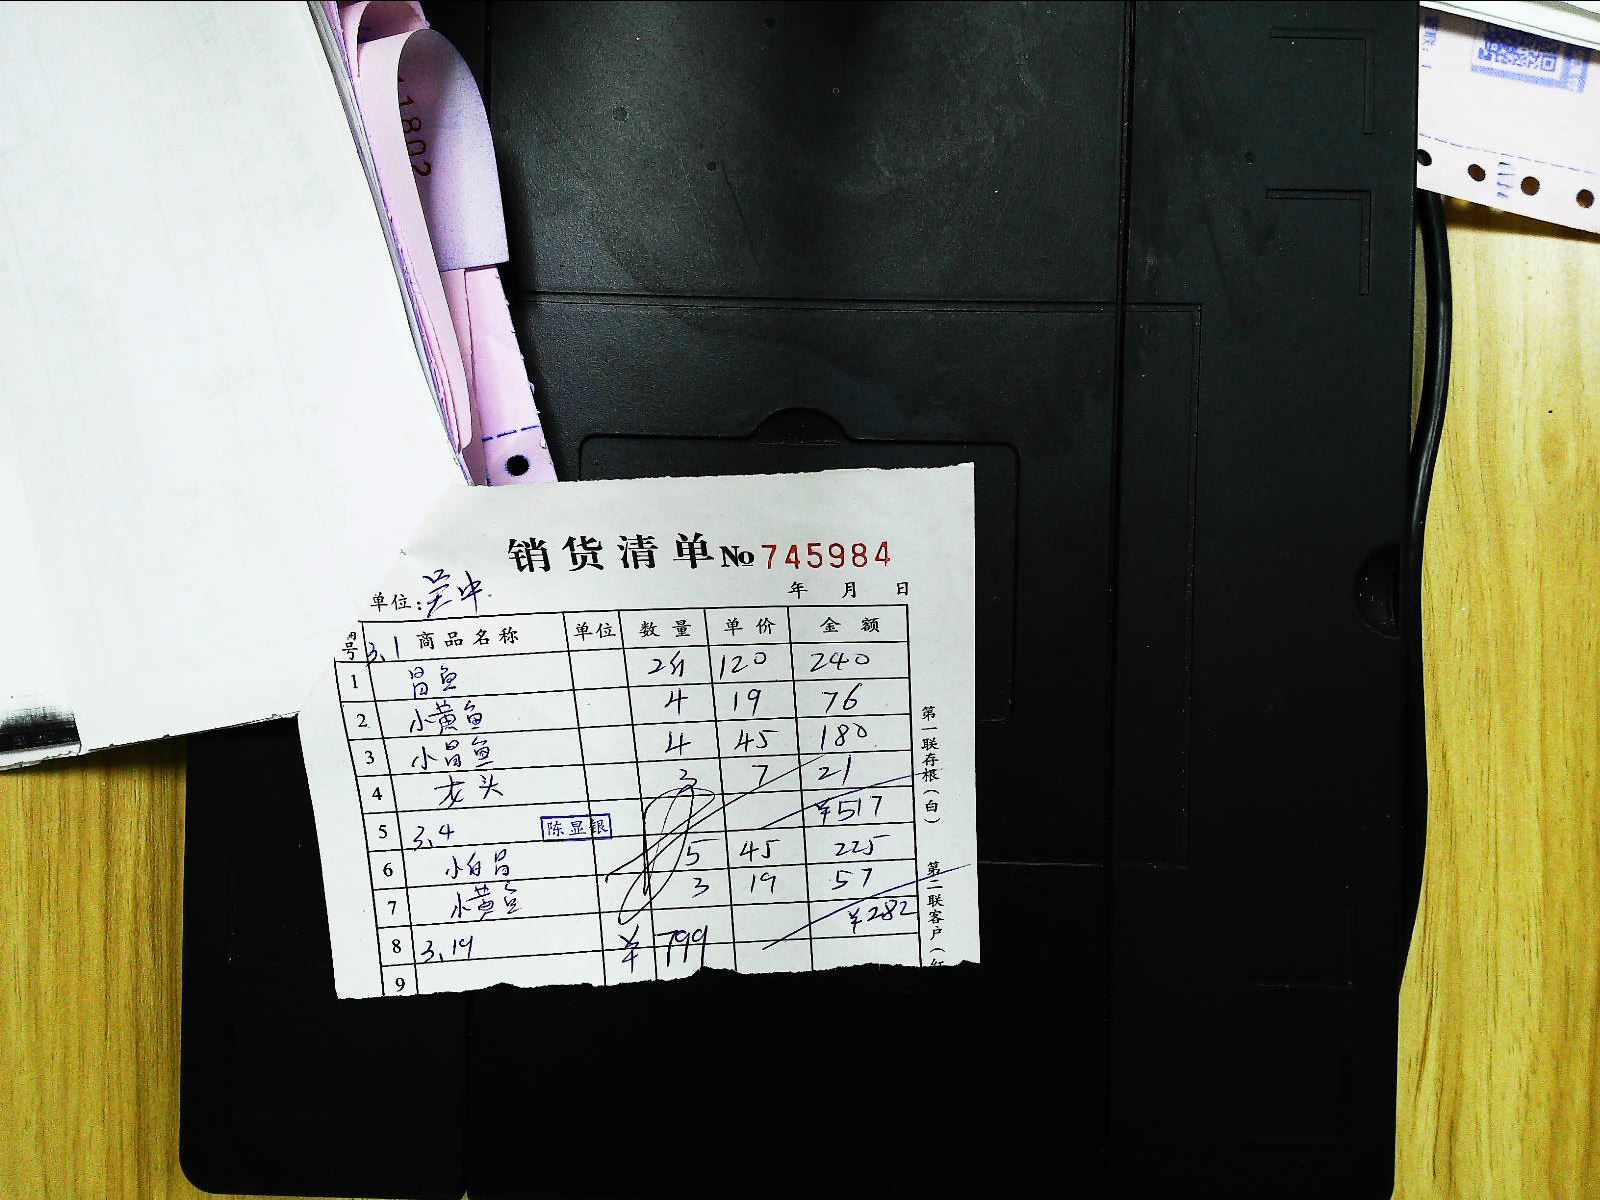 1802
销货清单 No 745984
单位: 吴中
年 月 日
号 3.1 商品名称 单位 数量 单价 金额
1 昌鱼 2斤 120 240
2 小黄鱼 4 19 76
3 小昌鱼 4 45 180
4 龙头 3 7 21
5 3.4 陈显银 ¥517
6 小白昌 5 45 225
7 小黄鱼 3 19 57
¥282
8 3.19 ¥ 799
9
第一联存根(白)
第二联客户(红